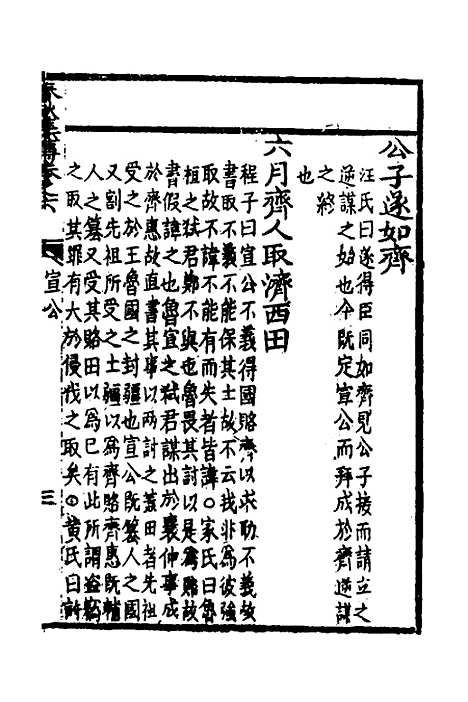 公子遂如齊
汪氏曰遂得臣同如齊見公子接而請立之
逆謀之始也今既定宣公而拜成於齊逆謀
之終
也
六月齊人取濟西田
程子曰宣公不義得國賂齊以求助不義故
書取不義不能保其土故不云我非為彼強
取故不諱不能有而失者皆諱○家氏曰魯
桓之弒君鄭不與也魯畏其討以是為賂故
書假諱之也魯宣之弒君謀出於襄仲事成
於齊惠故直書其事以兩討之蓋田者先祖
受之於王魯國之封疆也宣公既簒人之國
又割先祖所受之土疆以為齊賂齊惠既輔
人之簒又受其賂田以為己有此所謂盜
之取其罪有大於侵伐之取矣○黄氏曰許
宣公
三